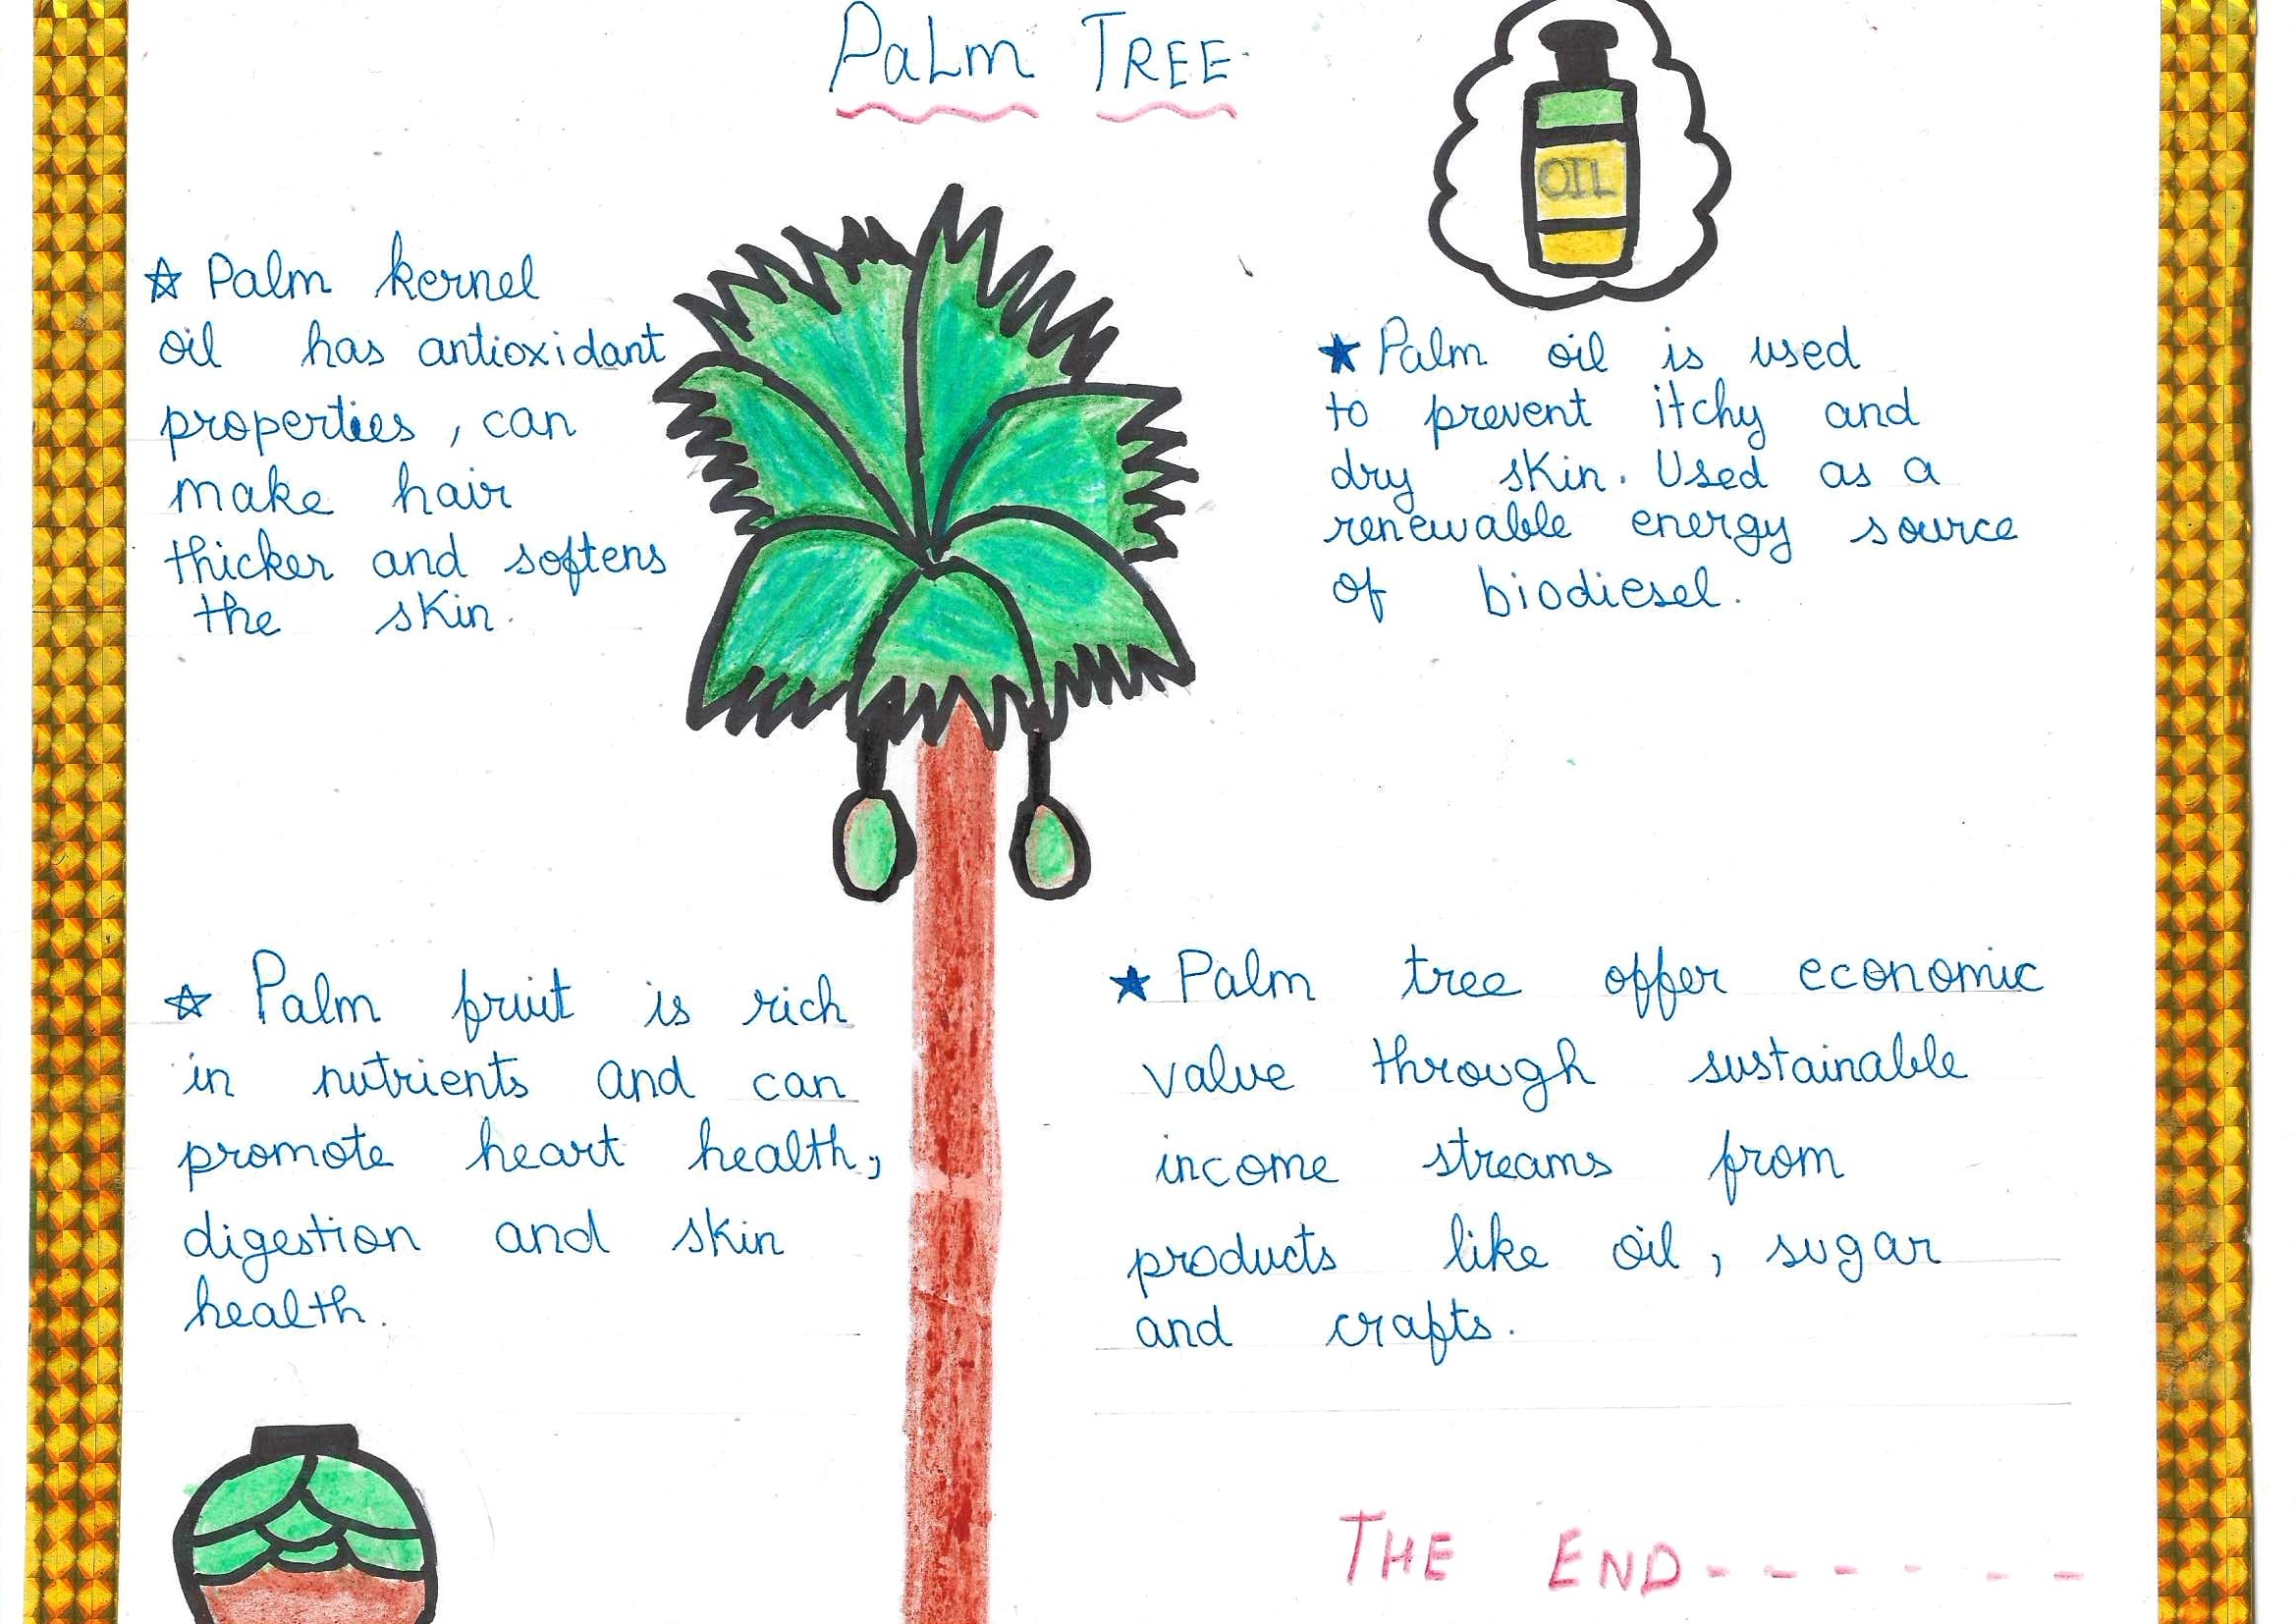 PaLm TREE
OIL
☆ Palm kernel
oil has antioxidant
properties, can
make hair
thicker and softens
the skin.
★ Palm oil is used
to prevent itchy and
dry skin. Used as a
renewable energy source
of biodiesel.
☆ Palm fruit is rich
in nutrients and can
promote heart health,
digestion and skin
health.
★ Palm tree offer economic
value through sustainable
income streams from
products like oil, sugar
and crafts.
THE END-------